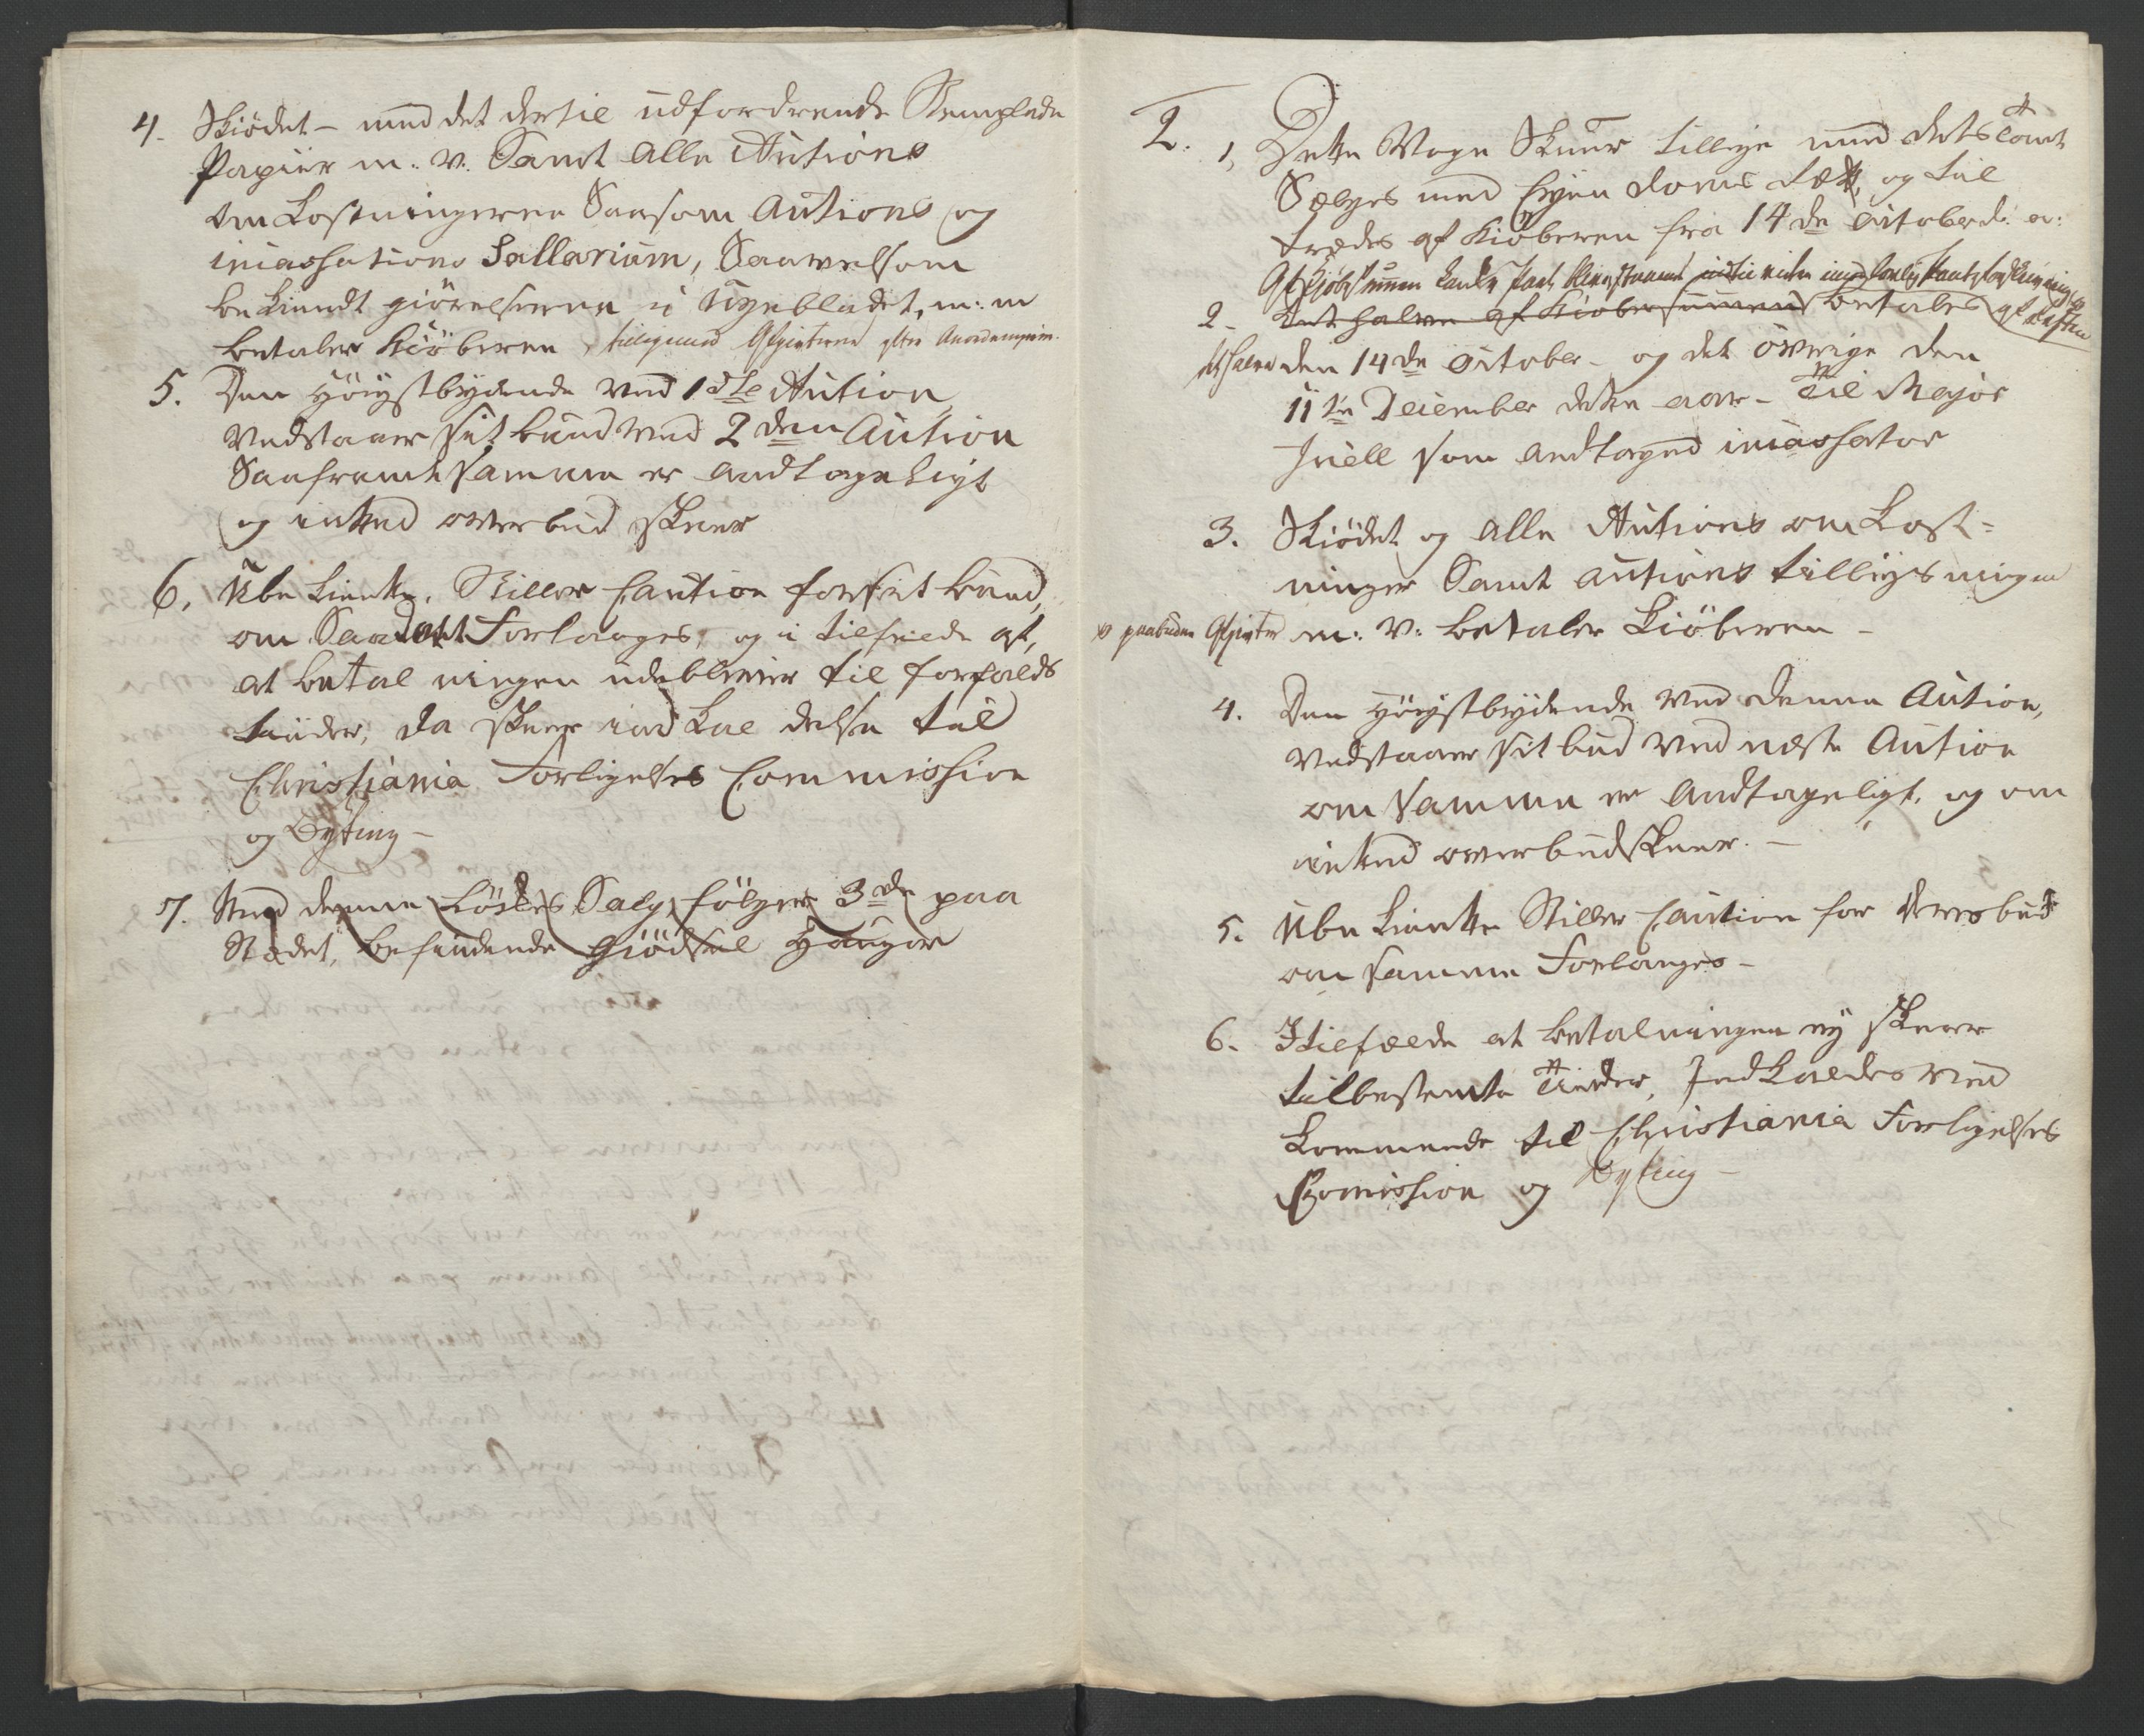 4. Skiödet – med det dertil udfordrende Stemplede
Papiir m: v. Samt alle Auctions
Omkostningerne Saasom Auctions og
incassations Sallarium, Saavelsom
bekiendt giörelserne i Ugebladet, m: m
betaler Kiöberen, tilligemed Afgivterne efter Anordningerne.
5. Den Höiystbydende ved 1ste Auction
vedstaaer sit bud ved 2den Auction
Saafremt samme er andtageligt
og intet overbud skeer
6. Ubekiendte, Stiller Caution for sit bud,
om Saadant Forlanges, og i tilfælde af,
at betalningen udebliver til forfalds
tiider, da skeer indkaldelse til
Christiania Forligelses Commission
og Byting –
7. Med denne Löckes Salg, fölger 3de paa
Stædet, befindende Giödsel Hauger
2. 1, Dette Vogn Skuur tillige med dets Tomt
Sælges med Eyendoms Ræt, og til
trædes af Kiöberen fra 14de October d: a:
Af Kjöbesummen kand
2 – Det halve af Kiöbesummen betales af Resten
det halve den 14de October – og det övrige den
11te December dette aar – Til Major
Juell som andtaged incassator
3. Skiödet og alle Auctions omkost=
ninger Samt auctions tillysningen
paabudne Afgivter m: v: betaler Kiöberen –
4. Den Höiystbydende ved denne Auction,
vedstaaer sit bud ved næste Auction
om samme er andtageligt, og om
intet overbud skeer. –
5. Ubekiendte Stiller Caution for deres bud
om samme Forlanges –
6. I tilfælde at betalningen ey skeer
til bestemte Tiider, Indkaldes ved
kommende til Christiania Forligelses
Comission og Byting –